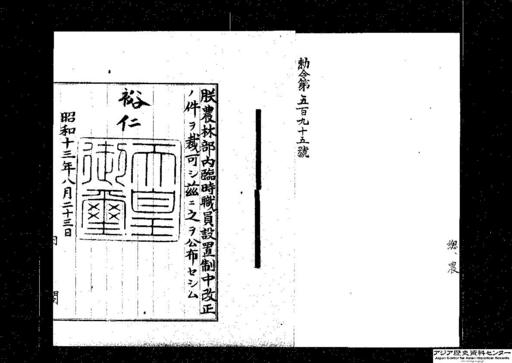 勅令第五百九十五號
朕農林部內臨時職員設置制中改正
ノ件ヲ裁可シ茲ニ之ヲ公布セシム
裕仁
天皇
御璽
昭和十三年八月二十三日
內閣
アジア歴史資料センター
Japan Center for Asian Historical Records